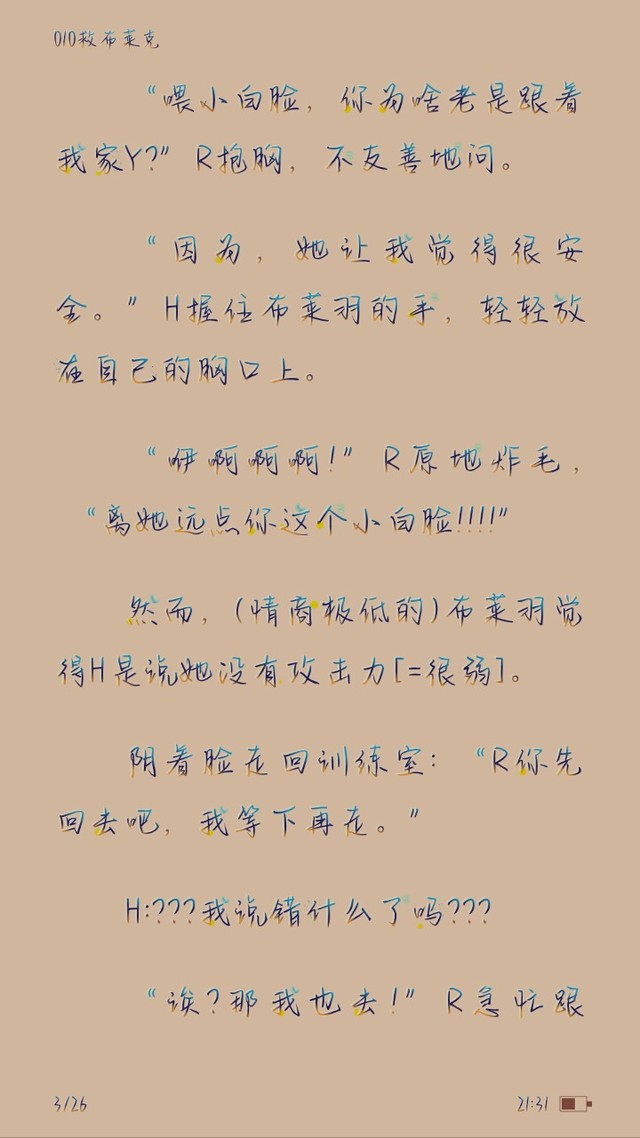 010救布莱克
“喂小白脸，你为啥老是跟着
我家Y?” R抱胸，不友善地问。
“因为，她让我觉得很安
全。” H握住布莱羽的手，轻轻放
在自己的胸口上。
“咿啊啊啊!” R原地炸毛，
“离她远点你这个小白脸!!!!”
然而，(情商极低的)布莱羽觉
得H是说她没有攻击力[=很弱]。
阴着脸走回训练室：“R你先
回去吧，我等下再走。”
H:???我说错什么了吗???
“诶?那我也去!” R急忙跟
3/26
21:31